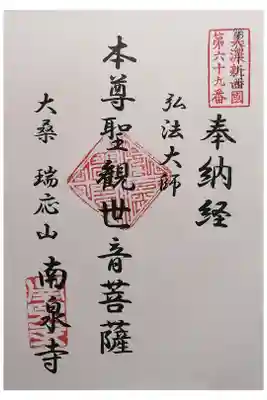 美濃新西國
第六十九番
奉納経
弘法大師
本尊聖観世音菩薩
大桑 瑞応山 南泉寺